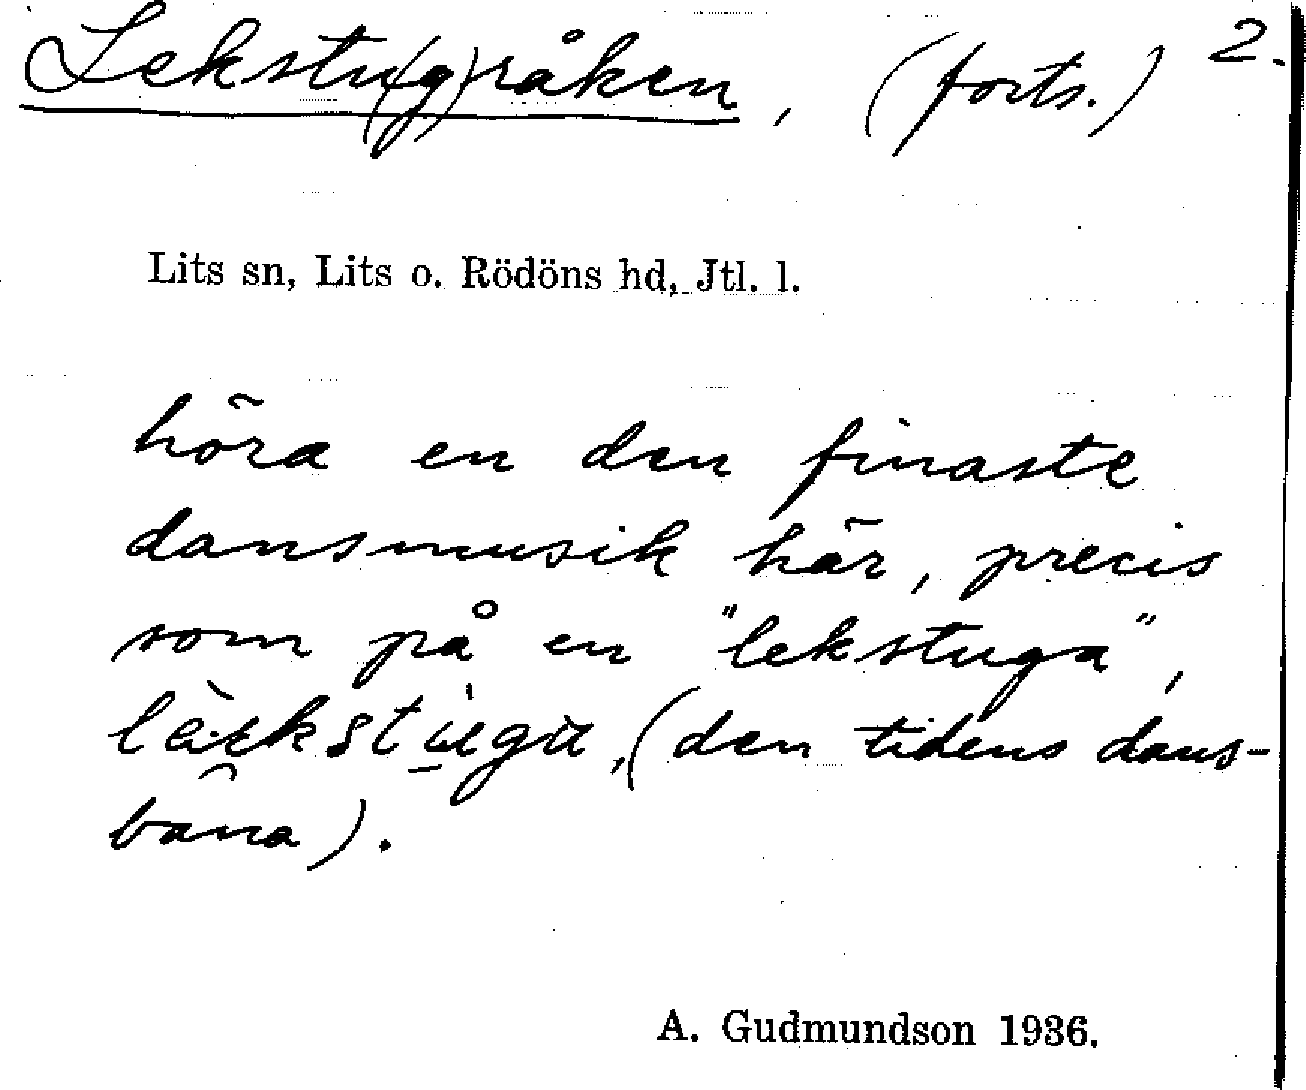 Lekstu(g)råken, (forts.) 2.
Lits sn, Lits o. Rödöns hd, Jtl. l.
höra en den finaste
dansmusik här, precis
som på en "lekstuga",
(den tidens dans-
bana).
A. Gudmundson 1936.